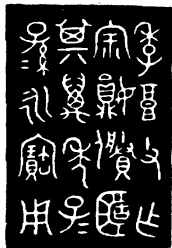 季良父乍
宗娟媵簠
其萬年子
孫永寶用